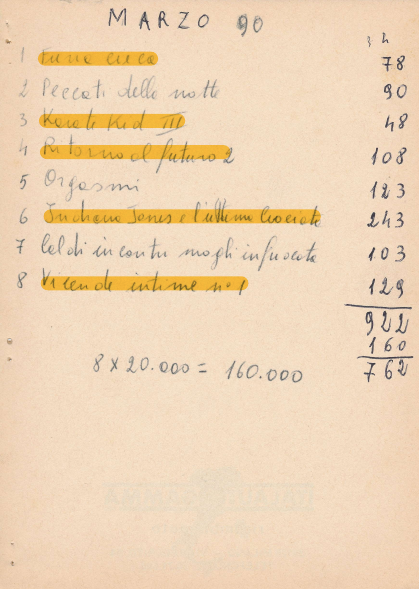 MARZO 90
3 h
1 Furia cieca 78
2 Peccati della notte 90
3 Karate Kid III 48
4 Ritorno al futuro 2 108
5 Orgasmi 123
6 Indiana Jones e l'ultima Crociata 243
7 Caldi incontri mogli infuocate 103
8 Vicende intime n. 1 129
922
160
8 x 20.000 = 160.000 762